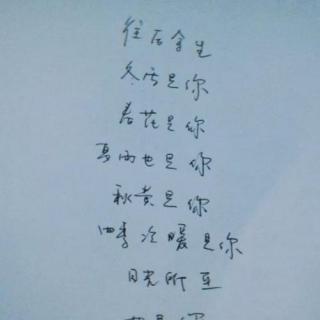 往后余生
冬雪是你
春花是你
夏雨也是你
秋黄是你
四季冷暖是你
目光所至
也是你